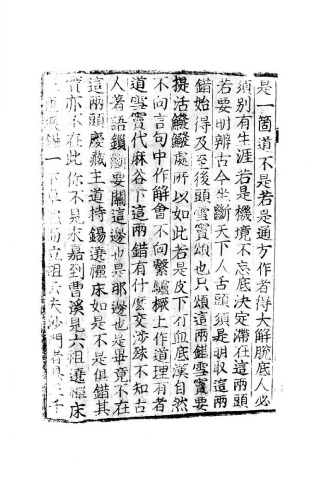 是一箇道不是若是通方作者得大解脫底人必
須別有生涯若是機境不忘底決定滯在這兩頭
若要明辨古今坐斷天下人舌頭須是明取這兩
錯始得及至後頭雪竇頌也只頌這兩錯雪竇要
提活鱍鱍處所以如此若是皮下有血底漢自然
不向言句中作解會不向繫驢橛上作道理有者
道雪竇代麻谷下這兩錯有什麼交涉殊不知古
人著語鎖斷要關這邊也是那邊也是畢竟不在
這兩頭慶藏主道持錫遶禪床如是不是俱錯其
實亦不在此你不見永嘉到曹溪見六祖遶禪床
一下卓然而立祖云夫沙門者具三千